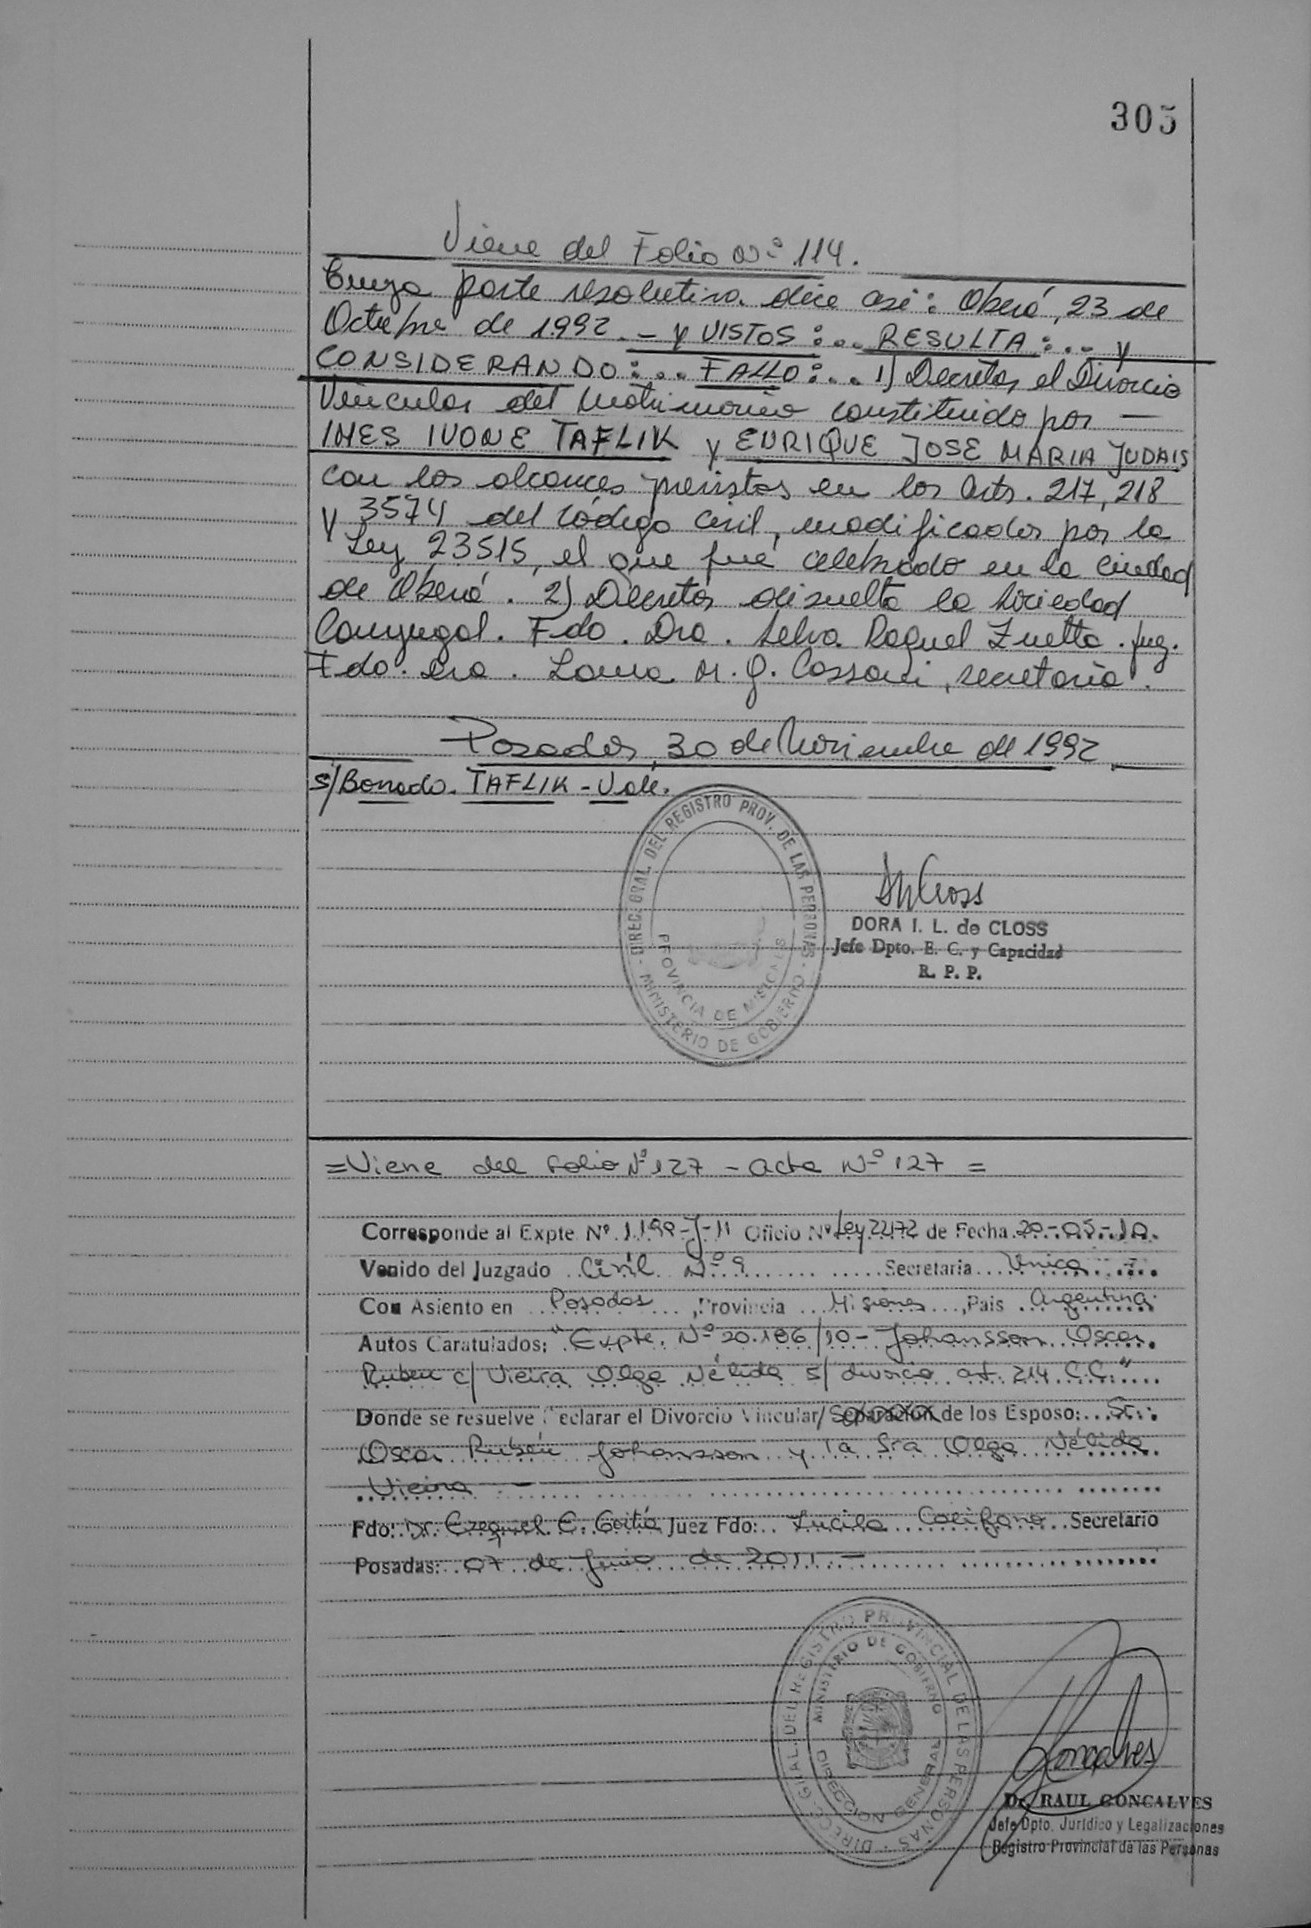 305
Viene del Folio Nº 114.
Cuya parte resolutiva dice así: Oberá, 23 de
Octubre de 1992.- Y VISTOS:... RESULTA:... Y
CONSIDERANDO:... FALLO:... 1) Decretar el Divorcio
Vincular del matrimonio constituido por —
INES IVONE TAFLIK y ENRIQUE JOSE MARIA JUDAIS
con los alcances previstos en los Arts. 217, 218
y 3574 del Código Civil, modificados por la
Ley 23515, el que fué celebrado en la ciudad
de Oberá. 2) Decretar disuelta la Sociedad
Conyugal. Fdo. Dra. Selva Raquel Zuetta. Juez.
Fdo. Dra. Laura M. G. Cossani, secretaria.
Posadas, 30 de Noviembre de 1992
S/Borrado. TAFLIK - Vale.
DIREC. GRAL. DEL REGISTRO PROV. DE LAS PERSONAS
PROVINCIA DE MISIONES
MINISTERIO DE GOBIERNO
DORA I. L. de CLOSS
Jefe Dpto. E. C. y Capacidad
R. P. P.
= Viene del folio Nº 127 - acta Nº 127 =
Corresponde al Expte. Nº 1199-J-11 Oficio Nº Ley 22172 de Fecha 20-05-10.
Venido del Juzgado Civil Nº 9 Secretaria Unica
Con Asiento en Posadas, Provincia Misiones, Pais Argentina
Autos Caratulados: "Expte. Nº 20.186/10 - Johansson Oscar
Ruben c/ Vieira Olga Nélida s/ divorcio art. 214 C.C."
Donde se resuelve Declarar el Divorcio Vincular/ Separación de los Esposo: Sr.
Oscar Rubén Johansson y la Sra Olga Nélida
Vieira -
Fdo: Dr. Ezequiel E. Goitía Juez Fdo: Lucila Califano Secretario
Posadas: 07 de Junio de 2011 -
DIREC. GRAL. DEL REGISTRO PROVINCIAL DE LAS PERSONAS
MINISTERIO DE GOBIERNO
DIRECCION GENERAL
Goncalves
Dr. RAUL GONCALVES
Jefe Dpto. Jurídico y Legalizaciones
Registro Provincial de las Personas